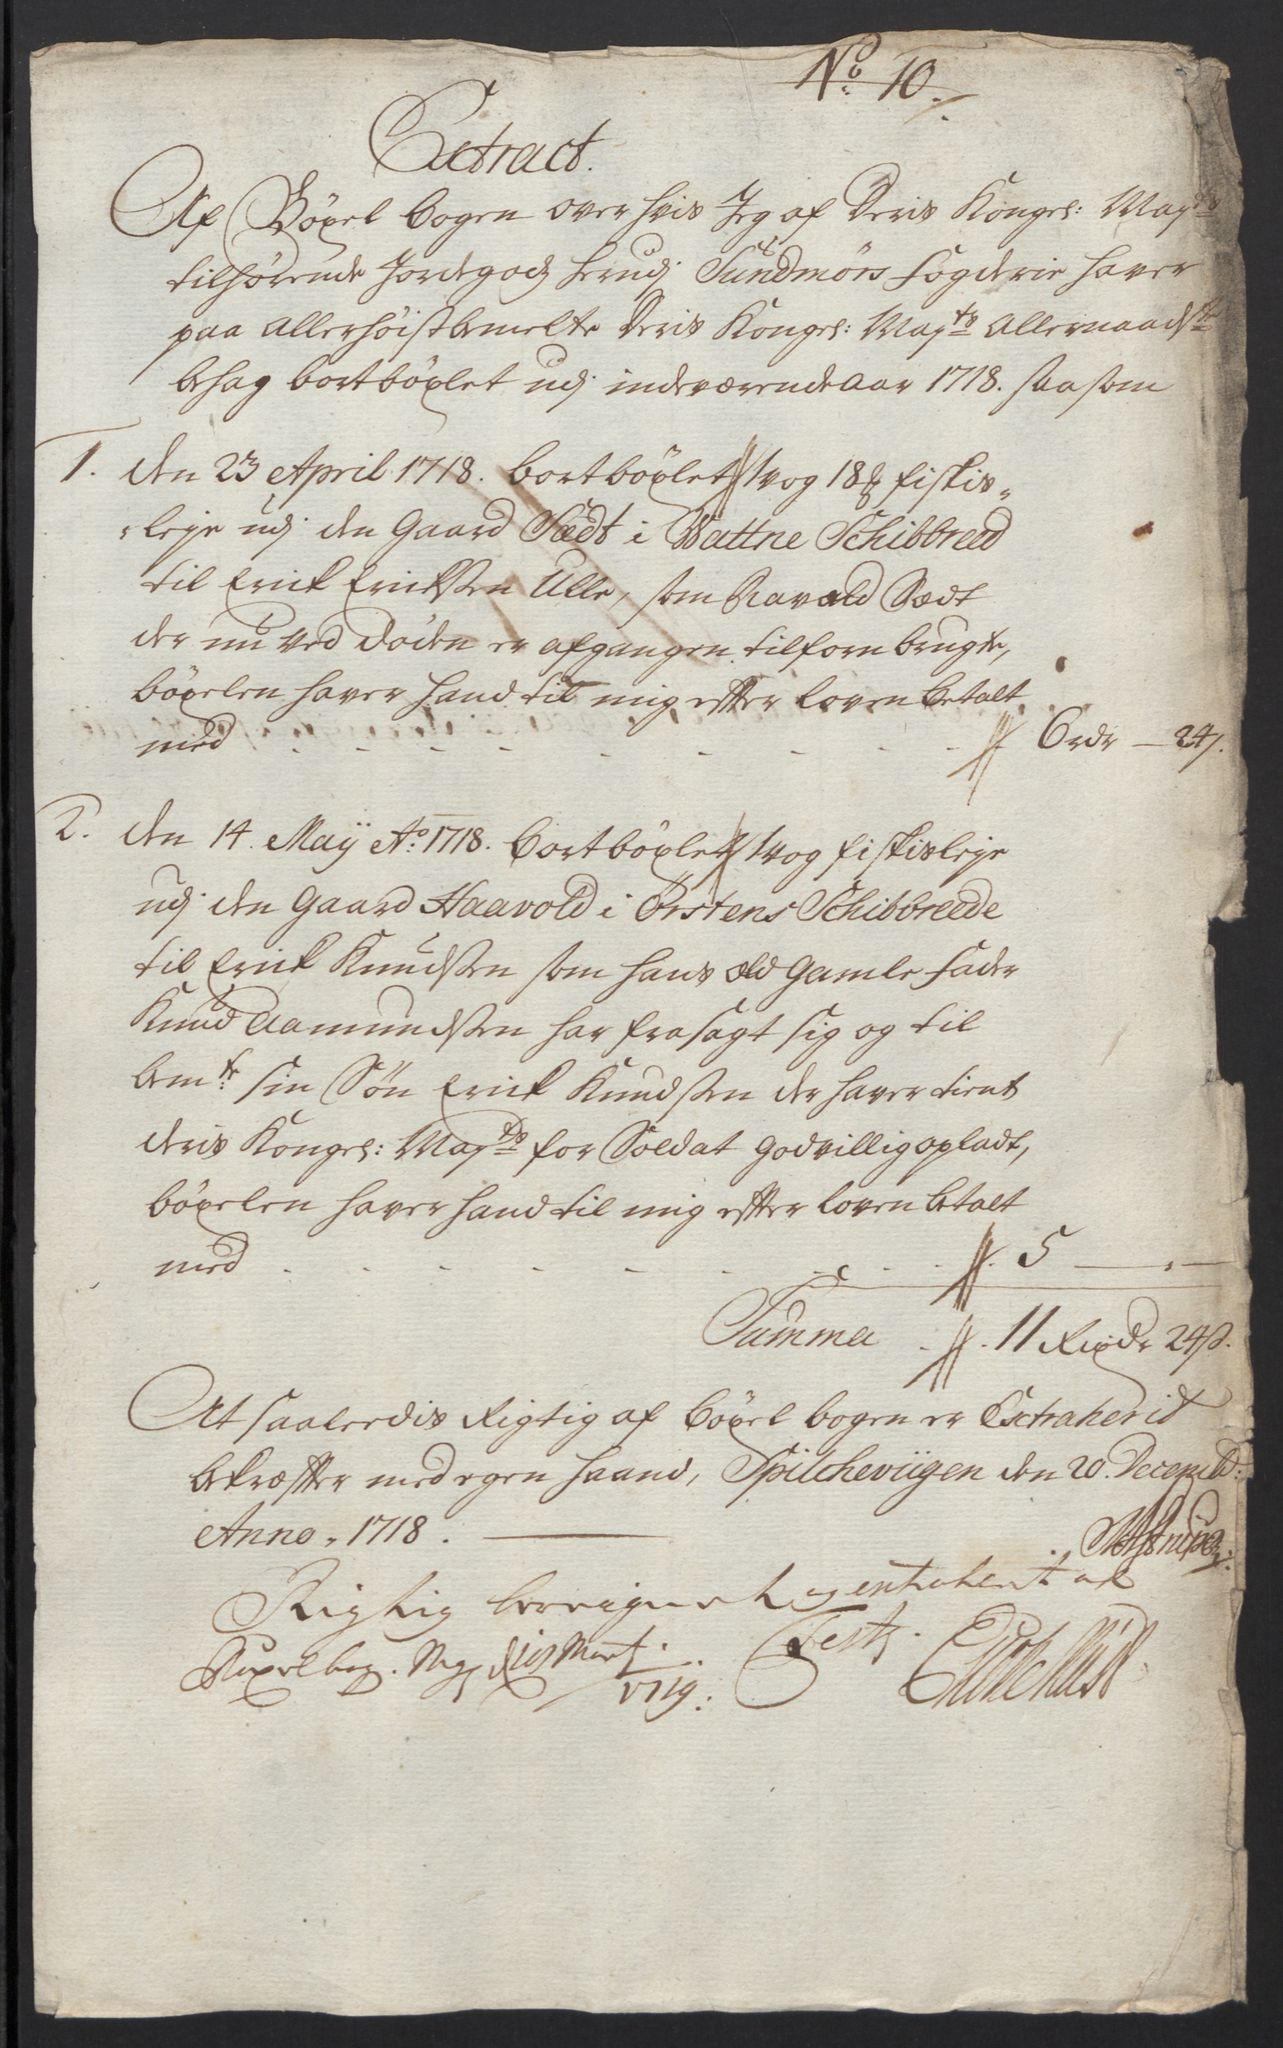 No 10.
Extract.
Af Böxel bogen over hvis Jeg af Deris Kongel: Mayts
tilhørende Jordegods herudj Sundmörs Fogderie haver
paa allerhöistbemelte Deris Kongel: Mayts allernaadste
behag bortböxlet udj indeværende aar 1718. saasom
1. den 23 April 1718. bortböxlet 1 vog 18 ℔ fiskis-
-leje udj den Gaard Sædt i Wattne Schibbreed
til Erick Ericksen Ulle, som Ravald Sædt
der nu ved döden er afgangen tilforn brugte,
böxelen haver hand til mig effter loven betalt
med - - - - - - - - 6 rdr - 24 s.
2. den 14. Maÿ Ao: 1718. bortböxlet 1 vog fiskisleje
udj den Gaard Haavold i Örstens Schibbreede
til Erick Knudsen som hans old gamle fader
Knud Aamundsen har frasagt sig og til
bemte: sin Sön Erick Knudsen der haver tient
deris Kongel: Mayts for Soldat godvillig opladt,
böxelen haver hand til mig effter loven betalt
med - - - - - - - - 5 — -
Summa - 11 Rixdr 24 s.
At saaleedis Rigtig af böxel bogen er Extraherid
bekræffter med egen haand, Spilcheviigen den 20. Decembr:
Anno 1718.
Rigtig beregnet og extrahert af
Testr.
1719.